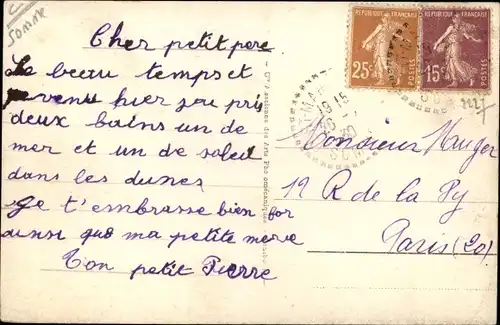 Somme
Cher petit pere
Le beau temps et
venu hier jai pris
deux bains un de
mer et un de soleil
dans les dunes
je t'embrasse bien for
ainsi que ma petite mere
Ton petit Pierre
REPUBLIQUE FRANÇAISE
25c
POSTES
REPUBLIQUE FRANÇAISE
15c
POSTES
19 15
30
SOMME
Monsieur
12 R de la Py
Paris (20)